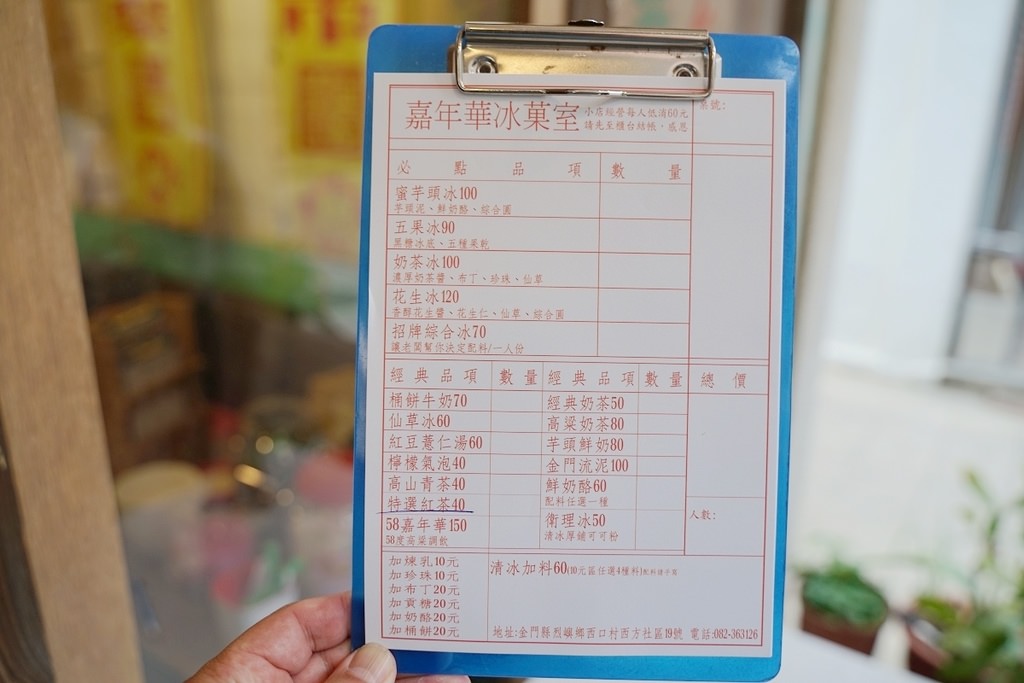 嘉年華冰菓室
小店經營每人低消60元
請先至櫃台結帳，感恩
桌號:
必點品項 數量
蜜芋頭冰100
芋頭泥、鮮奶酪、綜合圓
五果冰90
黑糖冰底、五種果乾
奶茶冰100
濃厚奶茶醬、布丁、珍珠、仙草
花生冰120
香醇花生醬、花生仁、仙草、綜合圓
招牌綜合冰70
讓老闆幫你決定配料/一人份
經典品項 數量 經典品項 數量 總價
桶餅牛奶70 經典奶茶50
仙草冰60 高粱奶茶80
紅豆薏仁湯60 芋頭鮮奶80
檸檬氣泡40 金門流泥100
高山青茶40 鮮奶酪60
配料任選一種
特選紅茶40
58嘉年華150 衛理冰50 人數:
58度高粱調飲 清冰厚鋪可可粉
加煉乳10元 清冰加料60(10元區任選4種料)
加珍珠10元
加布丁20元
加貢糖20元
加奶酪20元
加桶餅20元
地址:金門縣烈嶼鄉西口村西方社區19號 電話:082-363126